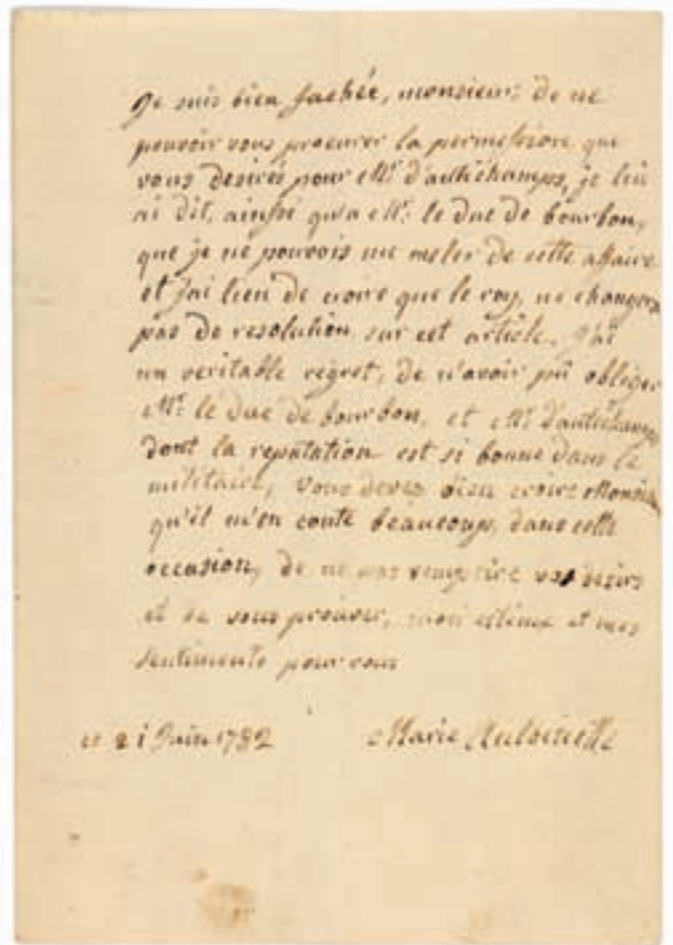 Je suis bien fachée, monsieur: de ne
pouvoir vous procurer la permission que
vous desirés pour Mr. d'autichamps, je lui
ai dit, ainssi qu'a Mr. le duc de bourbon,
que je ne pouvois me meler de cette affaire
et j'ai lieu de croire que le roy, ne changera
pas de resolution sur cet article. j'ai
un veritable regret, de n'avoir pû obliger
Mr. le duc de bourbon, et Mr. d'autichamps
dont la reputation est si bonne dans le
militaire, vous devez bien croire Monsieur
qu'il m'en coute beaucoup, dans cette
occasion, de ne pas remplire vos desirs
et de vous prouver, mon estime et mes
sentiments pour vous
ce 21 Juin 1782 Marie Antoinette